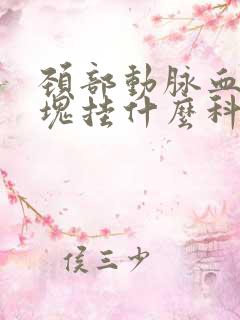 頚部動脉血
塊挂什麽科
侯三少